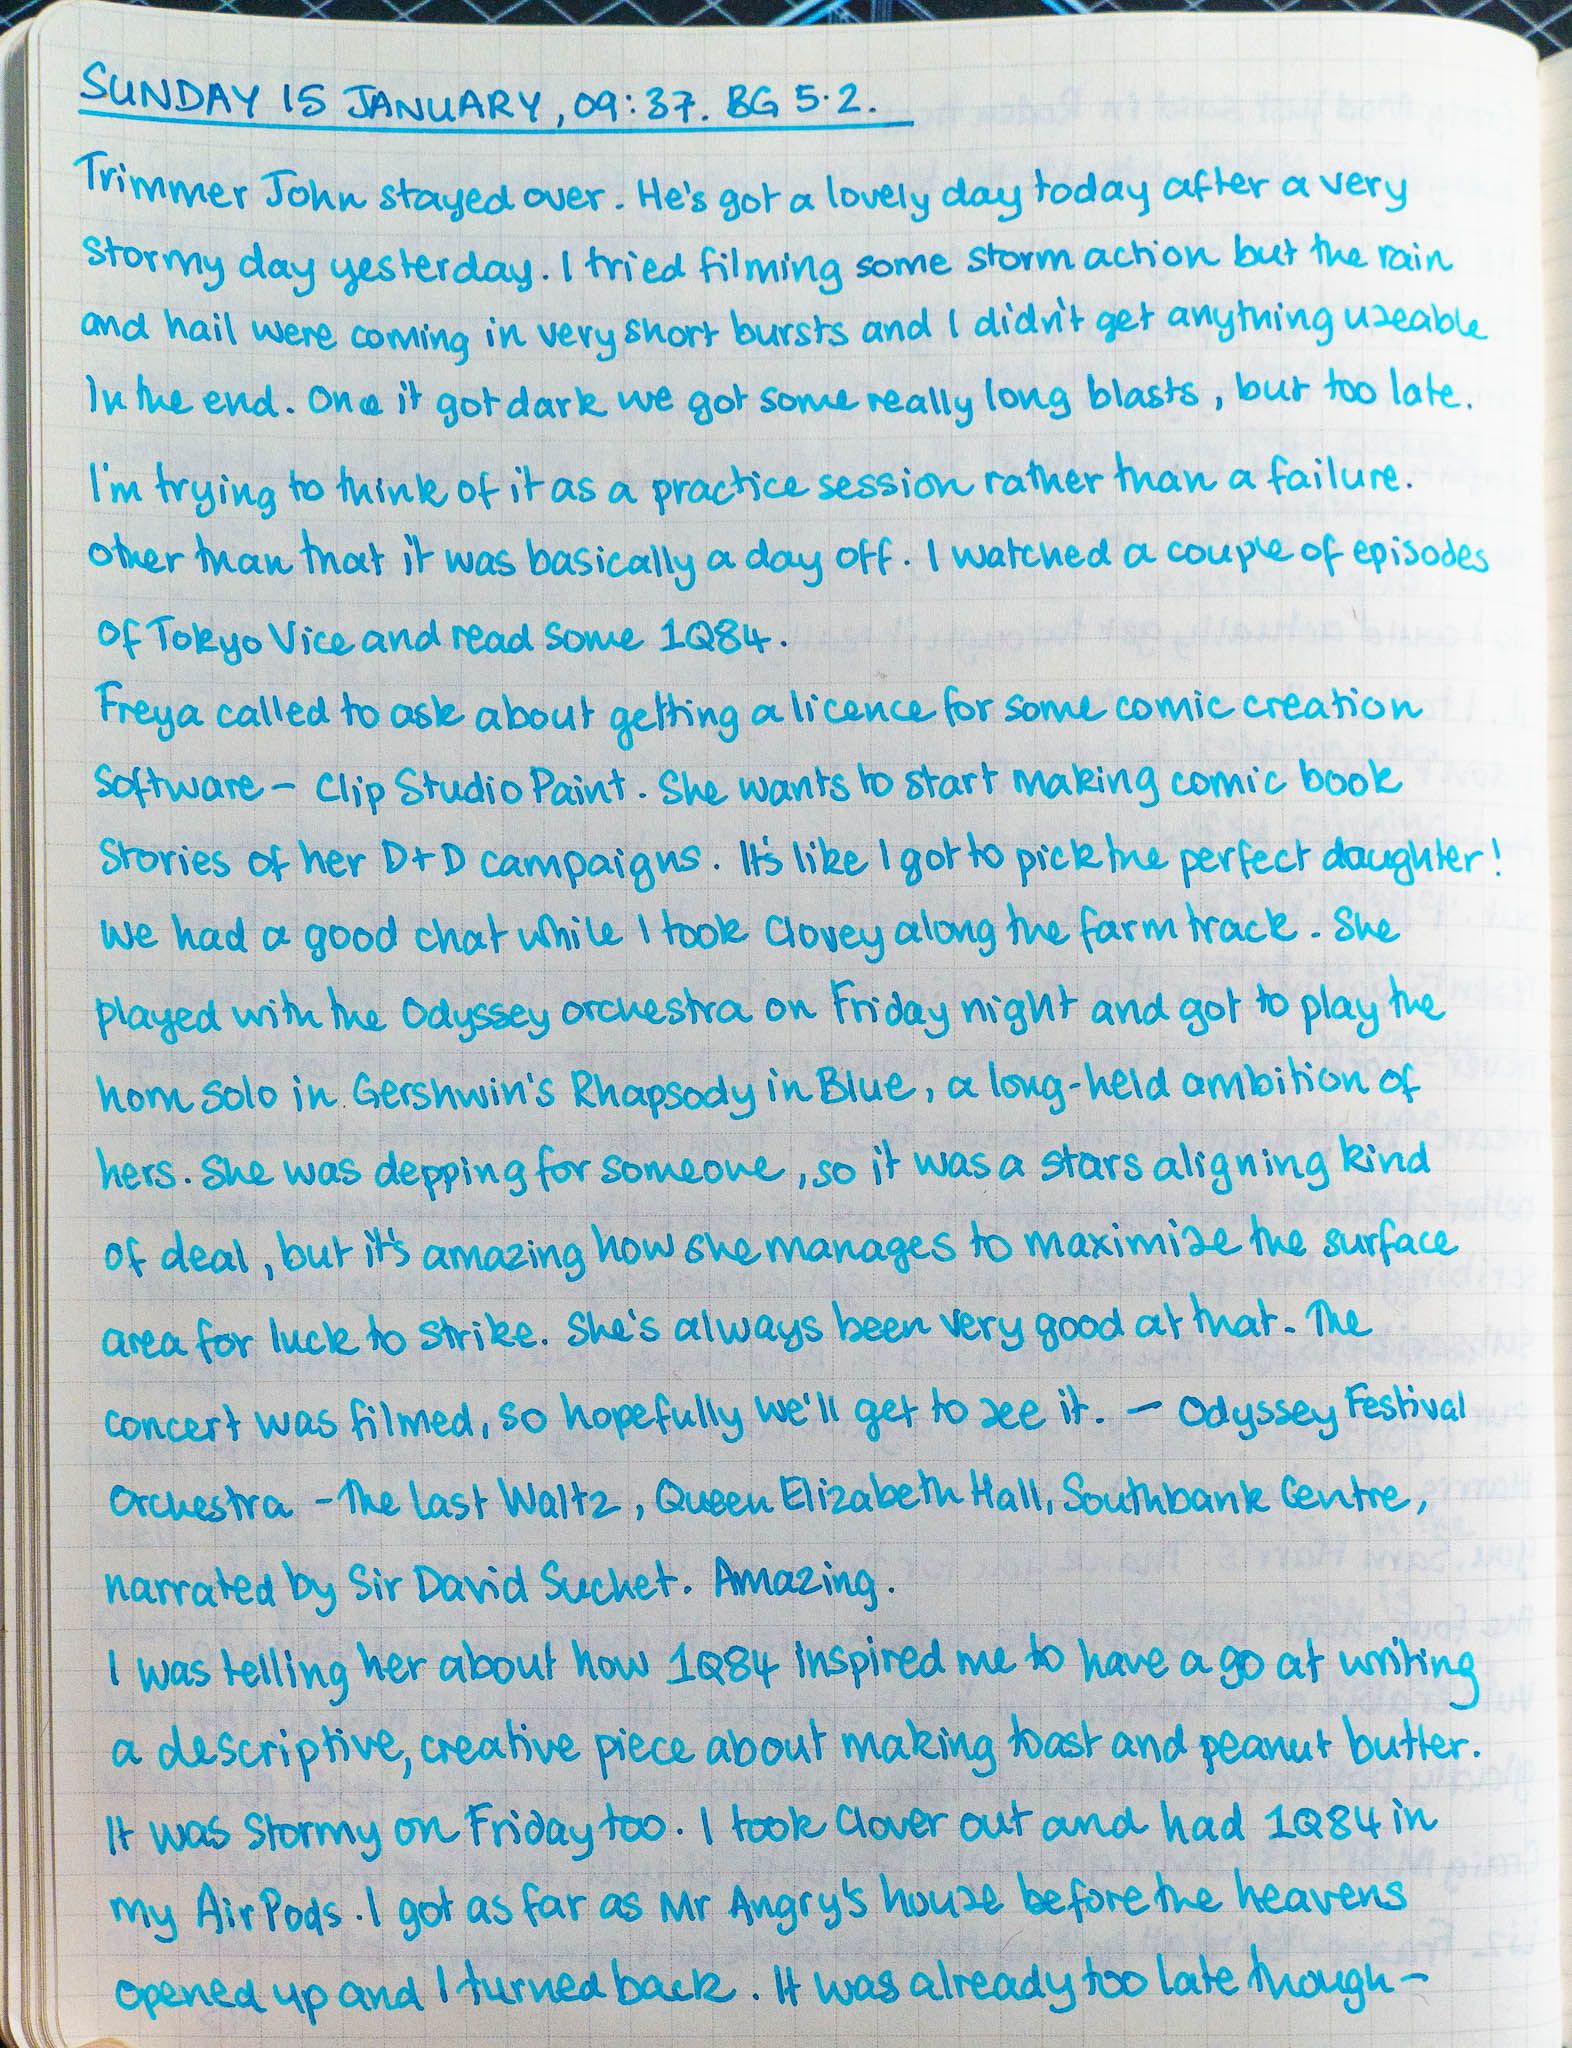 SUNDAY 15 JANUARY, 09:37. BG 5.2.
Trimmer John stayed over. He's got a lovely day today after a very
stormy day yesterday. I tried filming some storm action but the rain
and hail were coming in very short bursts and I didn't get anything useable
in the end. Once it got dark we got some really long blasts, but too late.
I'm trying to think of it as a practice session rather than a failure.
Other than that it was basically a day off. I watched a couple of episodes
of Tokyo Vice and read some 1Q84.
Freya called to ask about getting a licence for some comic creation
software – Clip Studio Paint. She wants to start making comic book
stories of her D+D campaigns. It's like I got to pick the perfect daughter!
We had a good chat while I took Clovey along the farm track. She
played with the Odyssey orchestra on Friday night and got to play the
horn solo in Gershwin's Rhapsody in Blue, a long-held ambition of
hers. She was depping for someone, so it was a stars aligning kind
of deal, but it's amazing how she manages to maximise the surface
area for luck to strike. She's always been very good at that. The
concert was filmed, so hopefully we'll get to see it. – Odyssey Festival
Orchestra – The Last Waltz, Queen Elizabeth Hall, Southbank Centre,
narrated by Sir David Suchet. Amazing.
I was telling her about how 1Q84 inspired me to have a go at writing
a descriptive, creative piece about making toast and peanut butter.
It was stormy on Friday too. I took Clover out and had 1Q84 in
my AirPods. I got as far as Mr Angry's house before the heavens
opened up and I turned back. It was already too late though –